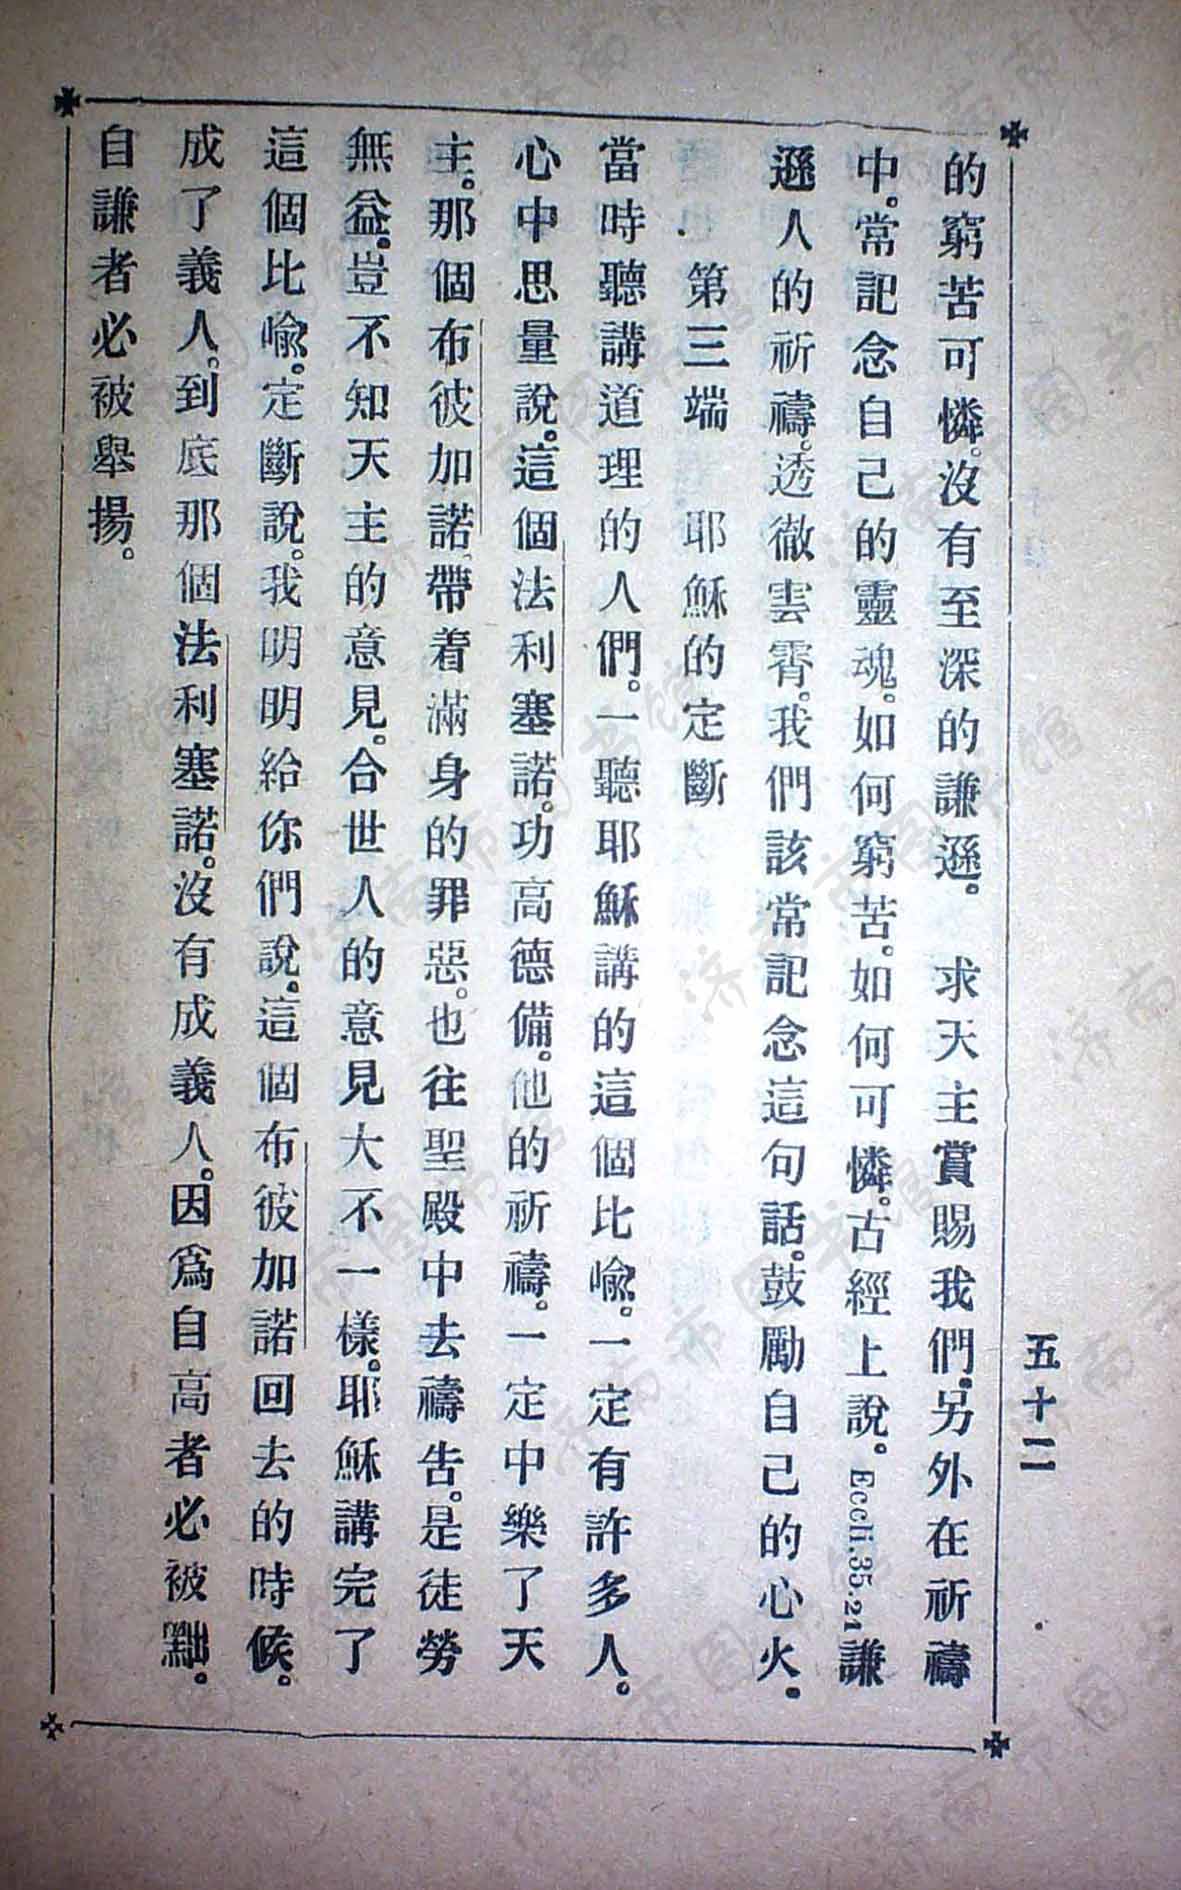 五十二
的窮苦可憐。沒有至深的謙遜。　求天主賞賜我們。另外在祈禱
中。常記念自己的靈魂。如何窮苦。如何可憐。古經上說。Eccli.35.21謙
遜人的祈禱。透徹雲霄。我們該常記念這句話。鼓勵自己的心火。
第三端　耶穌的定斷
當時聽講道理的人們。一聽耶穌講的這個比喻。一定有許多人。
心中思量說。這個法利塞諾。功高德備。他的祈禱。一定中樂了天
主。那個布彼加諾。帶着滿身的罪惡。也往聖殿中去禱告。是徒勞
無益。豈不知天主的意見。合世人的意見大不一樣。耶穌講完了
這個比喻。定斷說。我明明給你們說。這個布彼加諾回去的時候。
成了義人。到底那個法利塞諾。沒有成義人。因爲自高者必被黜。
自謙者必被舉揚。
济南市图书馆